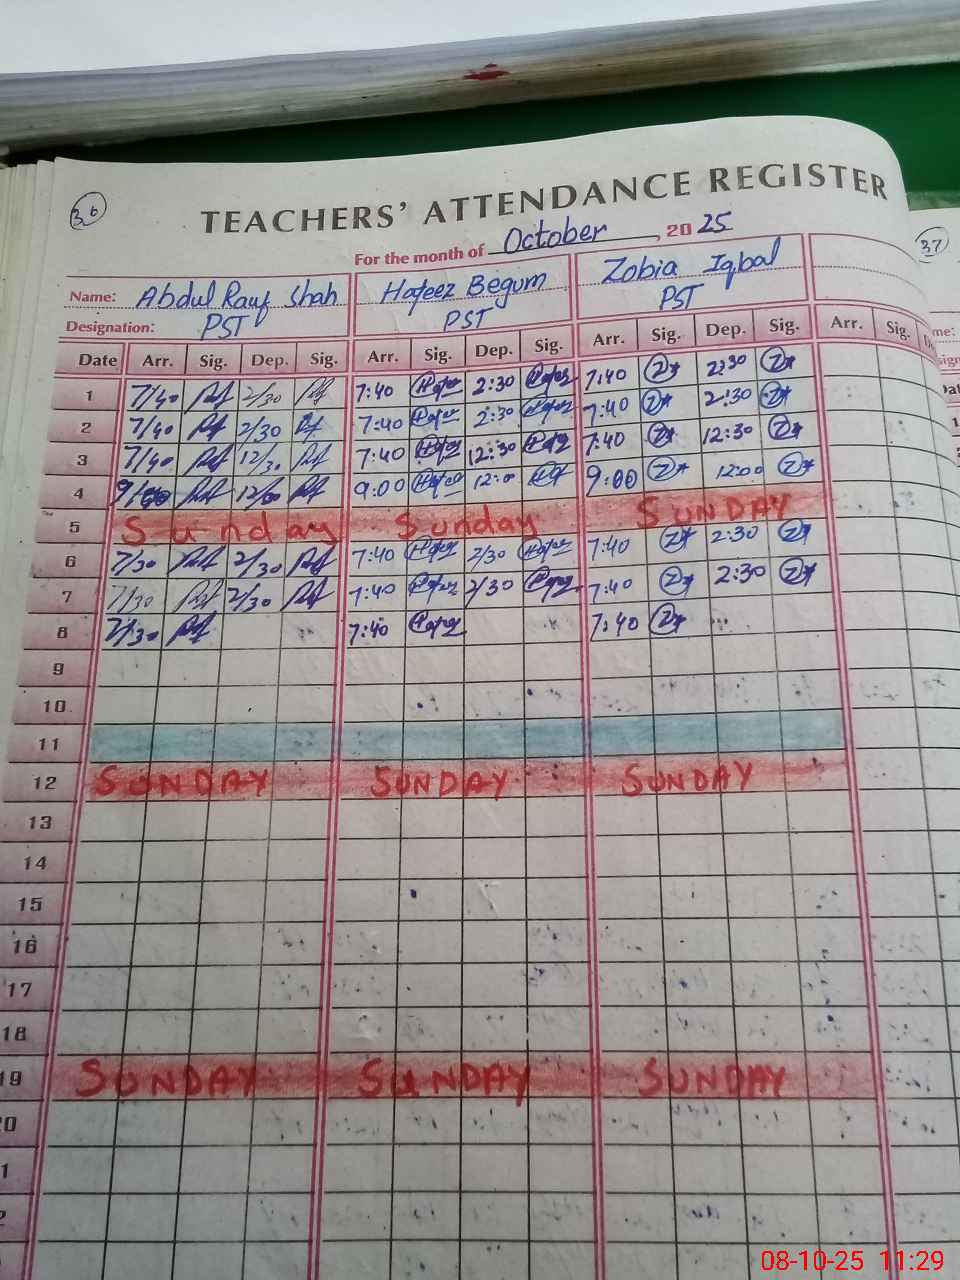 36
TEACHERS' ATTENDANCE REGISTER
For the month of October, 2025
37
Name: Abdul Rauf Shah Hafeez Begum Zobia Iqbal
Designation: PST PST PST
Date Arr. Sig. Dep. Sig. Arr. Sig. Dep. Sig. Arr. Sig. Dep. Sig. Arr. Sig.
1 7/40 2/30 7:40 2:30 7:40 2:30
2 7/40 2/30 7:40 2:30 7:40 2:30
3 7/40 12/30 7:40 12:30 7:40 12:30
4 9:00 9:00 12:00
5 Sunday Sunday SUNDAY
6 7/30 2/30 7:40 2/30 7:40 2:30
7 7/30 2/30 7:40 2/30 7:40 2:30
8 7/30 7:40 7:40
9
10
11
12 SUNDAY SUNDAY SUNDAY
13
14
15
16
17
18
19 SUNDAY SUNDAY SUNDAY
08-10-25 11:29